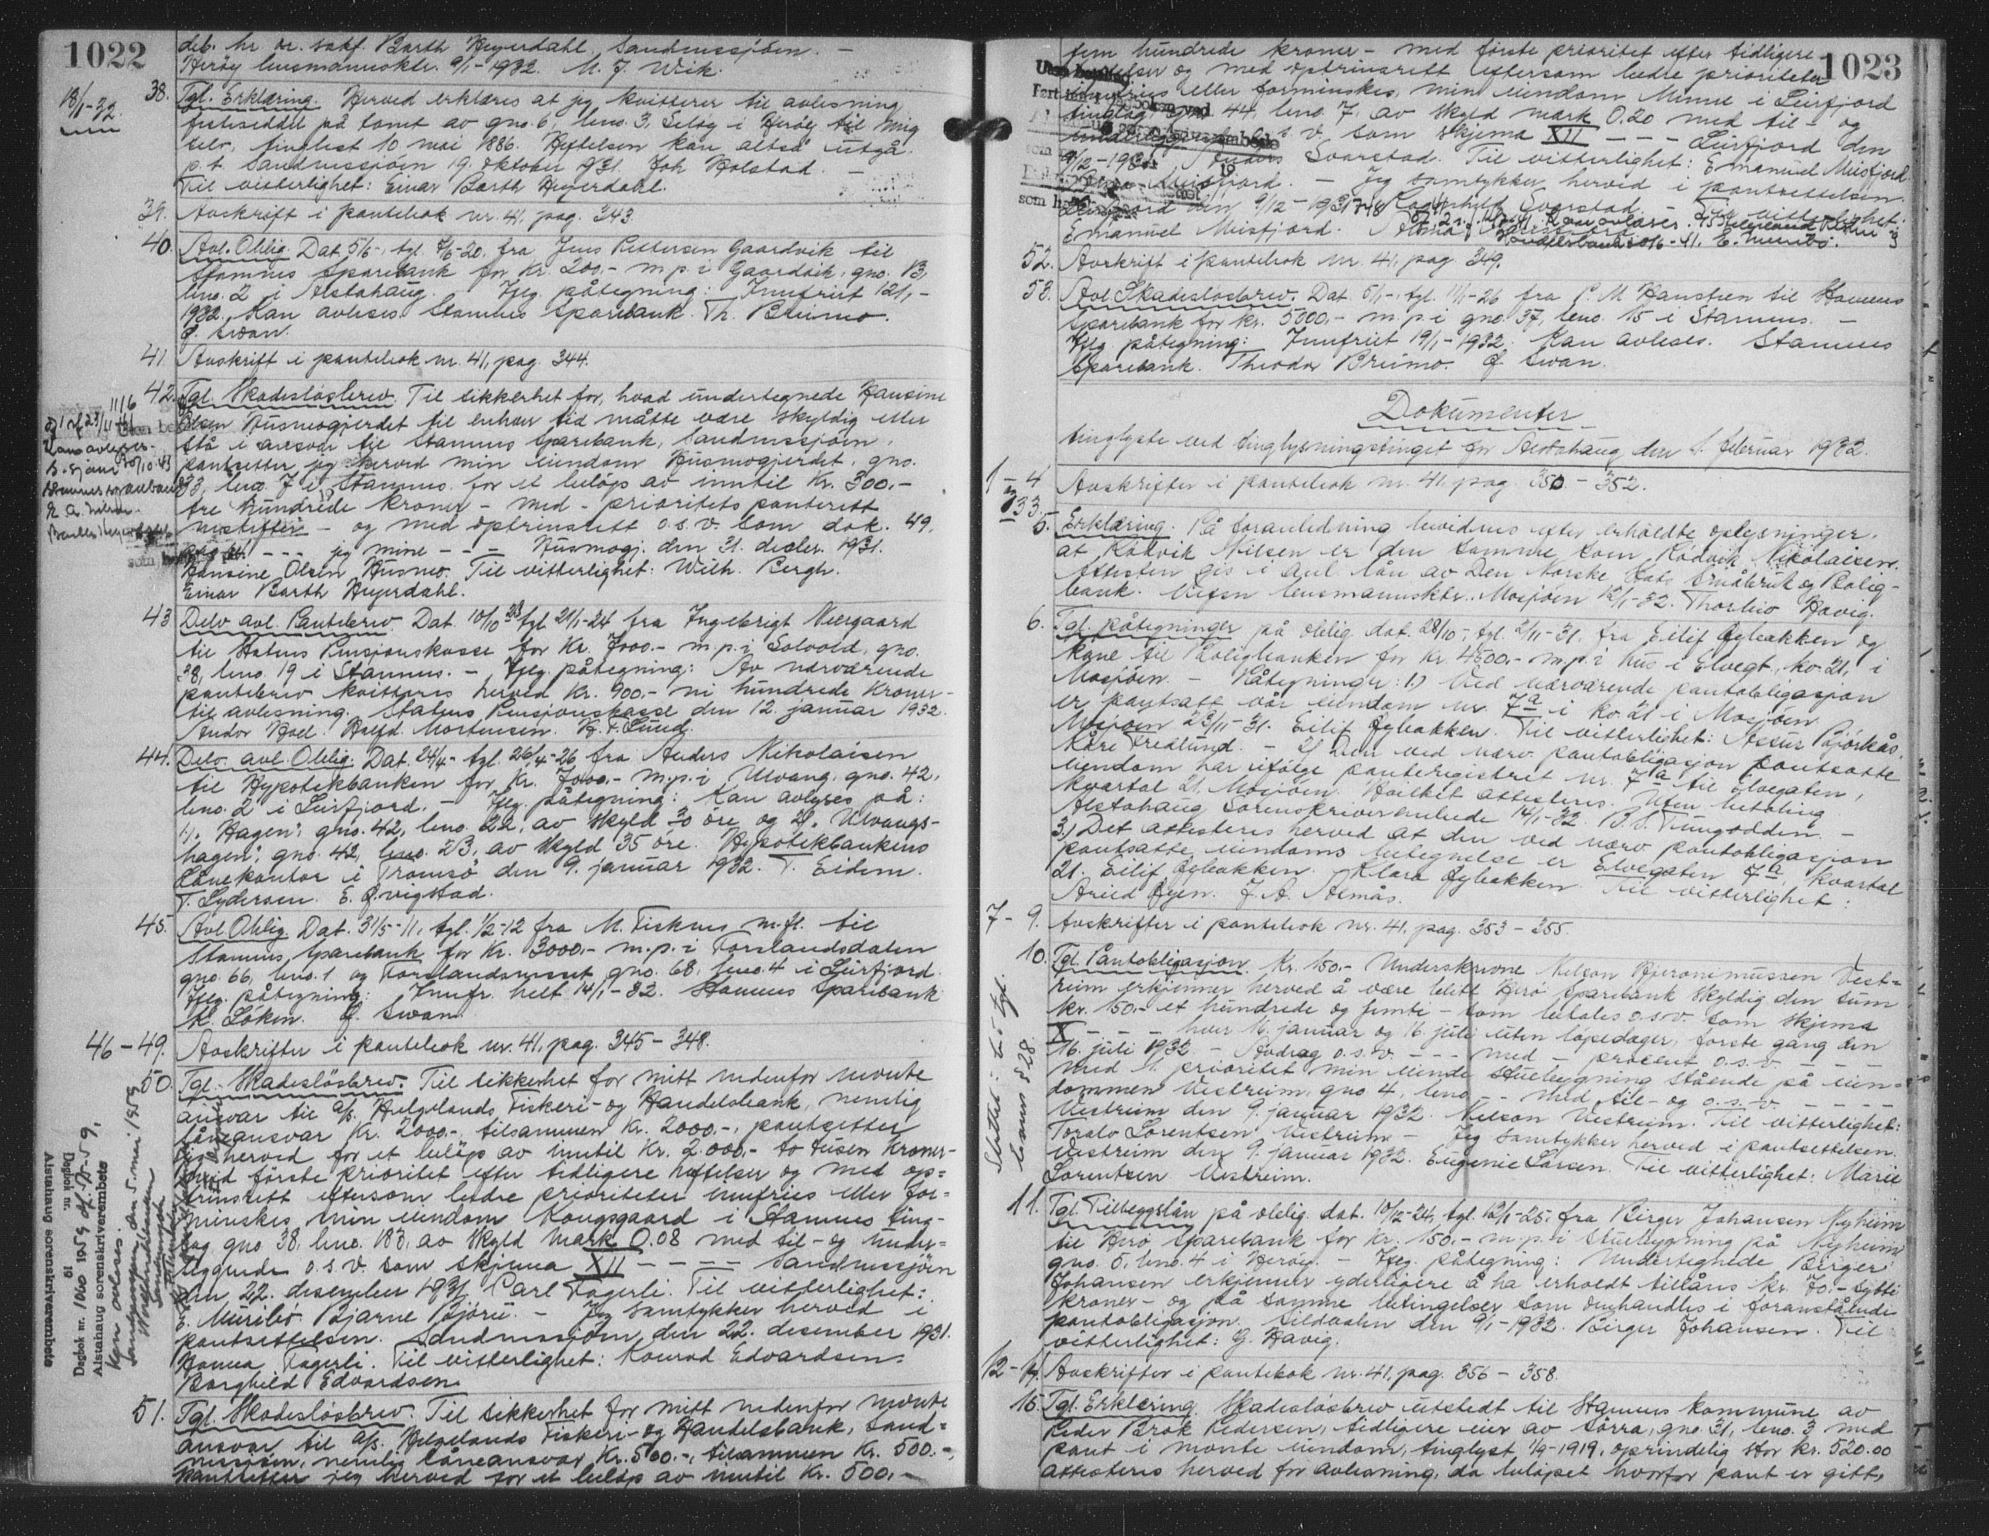 1022
deb. hr. or. sakf. Barth Heyerdahl, Sandnessjöen. -
Heröy lensmannsktr. 9/1-1932. M. J. Wik.
18/1-32.
38. Tgl. Erklæring. Herved erklæres at jeg kvitterer til avlesning
festeseddel på tomt av gno. 6, bno. 3, Seløy i Herøy til mig
selv, tinglest 10 mai 1886. Heftelsen kan altså utgå.
p.t. Sandnessjøen 19. oktober 1931. Joh. Holstad. -
Til vitterlighet: Einar Barth Heyerdahl.
39. Avskrift i pantebok nr. 41, pag. 343.
40. Avl. Oblig. Dat. 5/6-, tgl. /6-20. fra Jens Pettersen Gaardvik til
Stamnes Sparebank for Kr. 200,- m.p. i Gaardvik, gno.
bno. 2 i Alstahaug. Tgl. påtegning: Innfriet 12/1-
1932. Kan avleses. Stamnes Sparebank. Th. Breimo.
O. Swan.
41. Avskrift i pantebok nr. 41, pag. 344.
42. Tgl. Skadesløsbrev. Til sikkerhet for, hvad undertegnede Hansine
Olsen Husmogjerdet til enhver tid måtte være skyldig eller
stå i ansvar til Stamnes Sparebank, Sandnessjøen,
pantsetter jeg herved min eiendom Husmogjerdet, gno.
33, bno. 7 i Stamnes for et beløp av inntil Kr. 300.-
tre hundrede kroner - med - prioritets panterett
nestefter - og med optrinsrett o.s.v. som dok. 49.
- - - jeg mine - - - Husmogj. den 31. decbr. 1931.
Hansine Olsen Husmo. Til vitterlighet: Wilh. Bergh.
Einar Barth Heyerdahl.
43. Delv. avl. Pantebrev. Dat. 10/10 23 tgl. 21/1-24 fra Ingebrigt Neergaard
til Statens Pensjonskasse for Kr. 7000.- m.p. i Solvold, gno.
38, bno. 19 i Stamnes. - Tgl. påtegning: Av nærværende
pantebrev kvitteres herved Kr. 900,- ni hundrede kroner -
til avlesning. Statens Pensjonskasse den 12. januar 1932.
Andor Hoel. Halfd. Mortensen. H. F. Lund.
44. Delv. avl. Oblig. Dat. 24/4- tgl. 26/4-26 fra Anders Nikolaisen
til Hypotekbanken for Kr. 7000.- m.p. i Ulvang, gno. 42,
bno. 2 i Leirfjord. - Tgl. påtegning: Kan avlyses på:
1). "Hagen", gno. 42, bno. 22, av skyld 30 øre, og 2). "Ulvangs-
hagen", gno. 42, bno. 23, av skyld 35 øre. Hypotekbankens
Lånekontor i Tromsø den 9. januar 1932. T. Eidem.
T. Sydersen. E. Qvigstad.
45. Avl. Oblig. Dat. 31/5-11, tgl. 1/2-12 fra M. Fiskum m.fl. til
Stamnes Sparebank for Kr. 3000.- m.p. i Forslandsdalen
gno. 66, bno. 1 og Forslandsneset gno. 68, bno. 4 i Leirfjord.
Tgl. påtegning: Innfr. helt 14/1-32. Stamnes Sparebank
K. Løken. O. Swan.
46-49. Avskrifter i pantebok nr. 41, pag. 345-348.
50. Tgl. Skadesløsbrev. Til sikkerhet for mitt nedenfor nevnte
ansvar til A/S. Helgelands Fiskeri- og Handelsbank, nemlig
låneansvar Kr. 2000.-, tilsammen Kr. 2000.-, pantsetter
jeg herved for et beløp av inntil Kr. 2.000.- to tusen kroner -
med første prioritet efter tidligere heftelser og med op-
trinsrett eftersom bedre prioriteter innfries eller for-
minskes, min eiendom Kongsgaard i Stamnes ting-
lag gno. 38, bno. 183, av skyld mark 0.08 med til- og under-
liggende o.s.v. som skjema XII - - - - Sandnessjøen
den 22. desember 1931. Carl Fagerli. Til vitterlighet:
E. Muribø. Bjarne Bjøru. - Jeg samtykker herved i
pantsettelsen. Sandnessjøen, den 22. desember 1931.
Hanna Fagerli. Til vitterlighet: Konrad Edvardsen.
Borghild Edvardsen.
51. Tgl. Skadesløsbrev. Til sikkerhet for mitt nedenfor nevnte
ansvar til A/S. Helgelands Fiskeri- og Handelsbank, Sand-
nessjøen, nemlig låneansvar Kr. 500.-, tilsammen Kr. 500.-,
pantsetter jeg herved for et beløp av inntil Kr. 500,-
Dagbok nr. 1060 1959 Of. 5/5-59.
Alstahaug sorenskriverembete
Kan avleses.
Sandnessjøen den 5. mai 1959
Dagbok nr. 19
Alstahaug sorenskriverembete
1023
fem hundrede kroner - med første prioritet efter tidligere
heftelser og med optrinsrett eftersom bedre prioriteter
innfries eller forminskes, min eiendom Minne i Leirfjord
tinglag, gno. 44, bno. 7, av skyld mark 0.20 med til- og
o.s.v. som skjema XII - - - Leirfjord den
9/12-1931. Svarstad. Til vitterlighet: Emanuel Meisfjord.
Meisfjord. - Jeg samtykker herved i pantsettelsen.
Leirfjord den 9/12-1931. Ragnhild Svarstad. - Til vitterlighet:
Emanuel Meisfjord.
52. Avskrift i pantebok nr. 41, pag. 349.
53. Avl. Skadesløsbrev. Dat. 5/1-, tgl. 11/1-26 fra P. M. Hanssen til Stamnes
Sparebank for kr. 5000.- m.p. i gno. 37, bno. 15 i Stamnes. -
Tgl. påtegning: Innfriet 19/1-1932. Kan avleses. Stamnes
Sparebank. Theodor Breimo. O. Swan.
Dokumenter
tinglyste ved tinglysningstinget for Alstahaug den 1. februar 1932.
1-4 Avskrifter i pantebok nr. 41, pag. 350-352.
5. Erklæring. På foranledning bevidnes efter erholdte oplysninger,
at Rådvik Nilsen er den samme som Rådvik Nikolaisen.
Attesten gis i anl. lån av Den Norske Stats Småbruk og Bolig-
bank. Vefsn lensmannsktr., Mosjøen 12/1-32. Thorleiv Havig.
6. Tgl. påtegninger på oblig. dat. 28/10-, tgl. 2/11-31. fra Eilif Øybakken og
kone til Boligbanken for Kr. 4500.- m.p. i hus i Elvegt., kv. 21, i
Mosjøen. - Påtegninger: 1.) Ved nærværende pantobligasjon
er pantsatt vår eiendom nr. 7a i kv. 21 i Mosjøen.
Mosjøen 23/11-31. Eilif Øybakken. Til vitterlighet: Assur Bjørkås,
Kåre Fredlund. - 2) Den ved nærv. pantobligasjon pantsatte
eiendom har ifølge panteregistret nr. 7a til Elvegaten,
kvartal 21, Mosjøen. Hvilket attesteres. Uten betaling.
Alstahaug Sorenskriverembede 14/1-32. B. S. Tungodden. -
3.) Det attesteres herved at den ved nærv. pantobligasjon
pantsatte eiendoms betegnelse er Elvegaten 7a, kvartal
21. Eilif Øybakken. Klara Øybakken. Til vitterlighet:
Arvid Øyen. J. A. Almås.
7-9. Avskrifter i pantebok nr. 41, pag. 353-355.
10. Tgl. Pantobligasjon. Kr. 150.- Underskrevne Nelson Hjeronimussen Vest-
reim erkjenner herved å være blitt Herø Sparebank skyldig den sum
kr. 150.- et hundrede og femti - som betales o.s.v. som skjema
X - - - - hver 16. januar og 16. juli uten løpedager, første gang den
16. juli 1932 - Avdrag o.s.v. - - - med - procent o.s.v. - - -
med 1. prioritet min eiende stuebygning stående på eien-
dommen Vestreim, gno. 4, bno. - - med til- og o.s.v. - - - -
Vestreim den 9. januar 1932. Nelson Vestreim. Til vitterlighet:
Toralv Lorentsen Vestreim - Jeg samtykker herved i pantsettelsen.
Vestreim den 9. januar 1932. Eugenie Larsen. Til vitterlighet: Marie
Lorentsen Vestreim.
11. Tgl. Tilleggslån på oblig. dat. 10/12-24, tgl. 12/1-25, fra Birger Johansen Nyheim
til Herø Sparebank for kr. 150.- m.p. i stuebygning på Nyheim
gno. 5, bno. 4 i Herøy. - Tgl. påtegning: Undertegnede Birger
Johansen erkjenner yderligere å ha erholdt tillåns kr. 70.- sytti
kroner - og på samme betingelser som omhandles i foranstående
pantobligasjon. Sildvalen den 9/1-1932. Birger Johansen. Til
vitterlighet: G. Havig.
12-14. Avskrifter i pantebok nr. 41, pag. 356-358.
15. Tgl. Erklæring. Skadesløsbrev utstedt til Stamnes kommune av
Peder Brok Pedersen, tidligere eier av Sørra, gno. 31, bno. 3 med
pant i nevnte eiendom, tinglyst 1/9-1919, oprindelig stor kr. 520.00
attesteres herved for avlesning, da beløpet hvorfor pant er gitt,